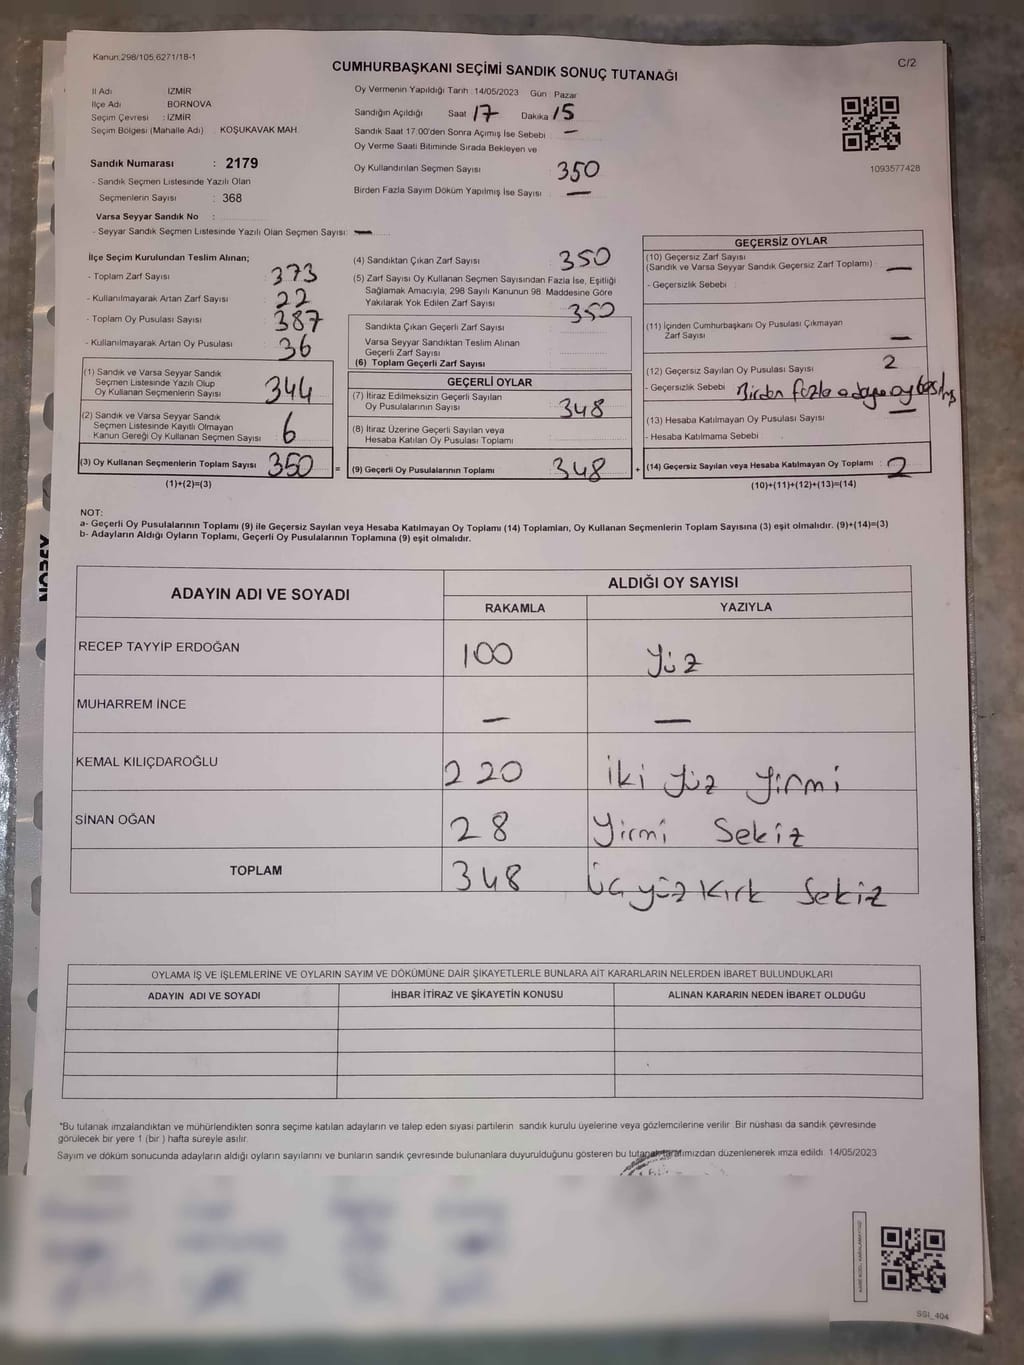 Kanun:298/105;6271/18-1
C/2
CUMHURBAŞKANI SEÇİMİ SANDIK SONUÇ TUTANAĞI
İl Adı İZMİR
İlçe Adı BORNOVA
Seçim Çevresi : İZMİR
Seçim Bölgesi (Mahalle Adı) : KOŞUKAVAK MAH.
Sandık Numarası : 2179
- Sandık Seçmen Listesinde Yazılı Olan
Seçmenlerin Sayısı : 368
Varsa Seyyar Sandık No :
- Seyyar Sandık Seçmen Listesinde Yazılı Olan Seçmen Sayısı: —
Oy Vermenin Yapıldığı Tarih : 14/05/2023 Gün : Pazar
Sandığın Açıldığı Saat 17 Dakika 15
Sandık Saat 17:00'den Sonra Açımış İse Sebebi —
Oy Verme Saati Bitiminde Sırada Bekleyen ve
Oy Kullandırılan Seçmen Sayısı : 350
Birden Fazla Sayım Döküm Yapılmış İse Sayısı : —
1093577428
İlçe Seçim Kurulundan Teslim Alınan;
- Toplam Zarf Sayısı : 373
- Kullanılmayarak Artan Zarf Sayısı : 22
- Toplam Oy Pusulası Sayısı : 387
- Kullanılmayarak Artan Oy Pusulası : 36
(1) Sandık ve Varsa Seyyar Sandık
Seçmen Listesinde Yazılı Olup
Oy Kullanan Seçmenlerin Sayısı : 344
(2) Sandık ve Varsa Seyyar Sandık
Seçmen Listesinde Kayıtlı Olmayan
Kanun Gereği Oy Kullanan Seçmen Sayısı : 6
(3) Oy Kullanan Seçmenlerin Toplam Sayısı : 350
(1)+(2)=(3)
(4) Sandıktan Çıkan Zarf Sayısı : 350
(5) Zarf Sayısı Oy Kullanan Seçmen Sayısından Fazla İse, Eşitliği
Sağlamak Amacıyla; 298 Sayılı Kanunun 98. Maddesine Göre
Yakılarak Yok Edilen Zarf Sayısı : 350
Sandıkta Çıkan Geçerli Zarf Sayısı :
Varsa Seyyar Sandıktan Teslim Alınan
Geçerli Zarf Sayısı :
(6) Toplam Geçerli Zarf Sayısı
GEÇERLİ OYLAR
(7) İtiraz Edilmeksizin Geçerli Sayılan
Oy Pusulalarının Sayısı : 348
(8) İtiraz Üzerine Geçerli Sayılan veya
Hesaba Katılan Oy Pusulası Toplamı :
= (9) Geçerli Oy Pusulalarının Toplamı : 348 +
GEÇERSİZ OYLAR
(10) Geçersiz Zarf Sayısı
(Sandık ve Varsa Seyyar Sandık Geçersiz Zarf Toplamı) : —
- Geçersizlik Sebebi :
(11) İçinden Cumhurbaşkanı Oy Pusulası Çıkmayan
Zarf Sayısı : —
(12) Geçersiz Sayılan Oy Pusulası Sayısı : 2
- Geçersizlik Sebebi : Birden fazla adaya oy
(13) Hesaba Katılmayan Oy Pusulası Sayısı : —
- Hesaba Katılmama Sebebi :
(14) Geçersiz Sayılan veya Hesaba Katılmayan Oy Toplamı : 2
(10)+(11)+(12)+(13)=(14)
NOT:
a- Geçerli Oy Pusulalarının Toplamı (9) ile Geçersiz Sayılan veya Hesaba Katılmayan Oy Toplamı (14) Toplamları, Oy Kullanan Seçmenlerin Toplam Sayısına (3) eşit olmalıdır. (9)+(14)=(3)
b- Adayların Aldığı Oyların Toplamı, Geçerli Oy Pusulalarının Toplamına (9) eşit olmalıdır.
ADAYIN ADI VE SOYADI ALDIĞI OY SAYISI
RAKAMLA YAZIYLA
RECEP TAYYİP ERDOĞAN 100 Yüz
MUHARREM İNCE — —
KEMAL KILIÇDAROĞLU 220 İki Yüz Yirmi
SİNAN OĞAN 28 Yirmi Sekiz
TOPLAM 348 Üç yüz Kırk Sekiz
OYLAMA İŞ VE İŞLEMLERİNE VE OYLARIN SAYIM VE DÖKÜMÜNE DAİR ŞİKAYETLERLE BUNLARA AİT KARARLARIN NELERDEN İBARET BULUNDUKLARI
ADAYIN ADI VE SOYADI İHBAR İTİRAZ VE ŞİKAYETİN KONUSU ALINAN KARARIN NEDEN İBARET OLDUĞU
"Bu tutanak imzalandıktan ve mühürlendikten sonra seçime katılan adayların ve talep eden siyasi partilerin sandık kurulu üyelerine veya gözlemcilerine verilir. Bir nüshası da sandık çevresinde
görülecek bir yere 1 (bir ) hafta süreyle asılır.
Sayım ve döküm sonucunda adayların aldığı oyların sayılarını ve bunların sandık çevresinde bulunanlara duyurulduğunu gösteren bu tutanak tarafımızdan düzenlenerek imza edildi. 14/05/2023
SSI_404